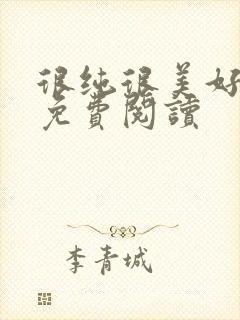 很纯很美好
免費閱讀
李青城